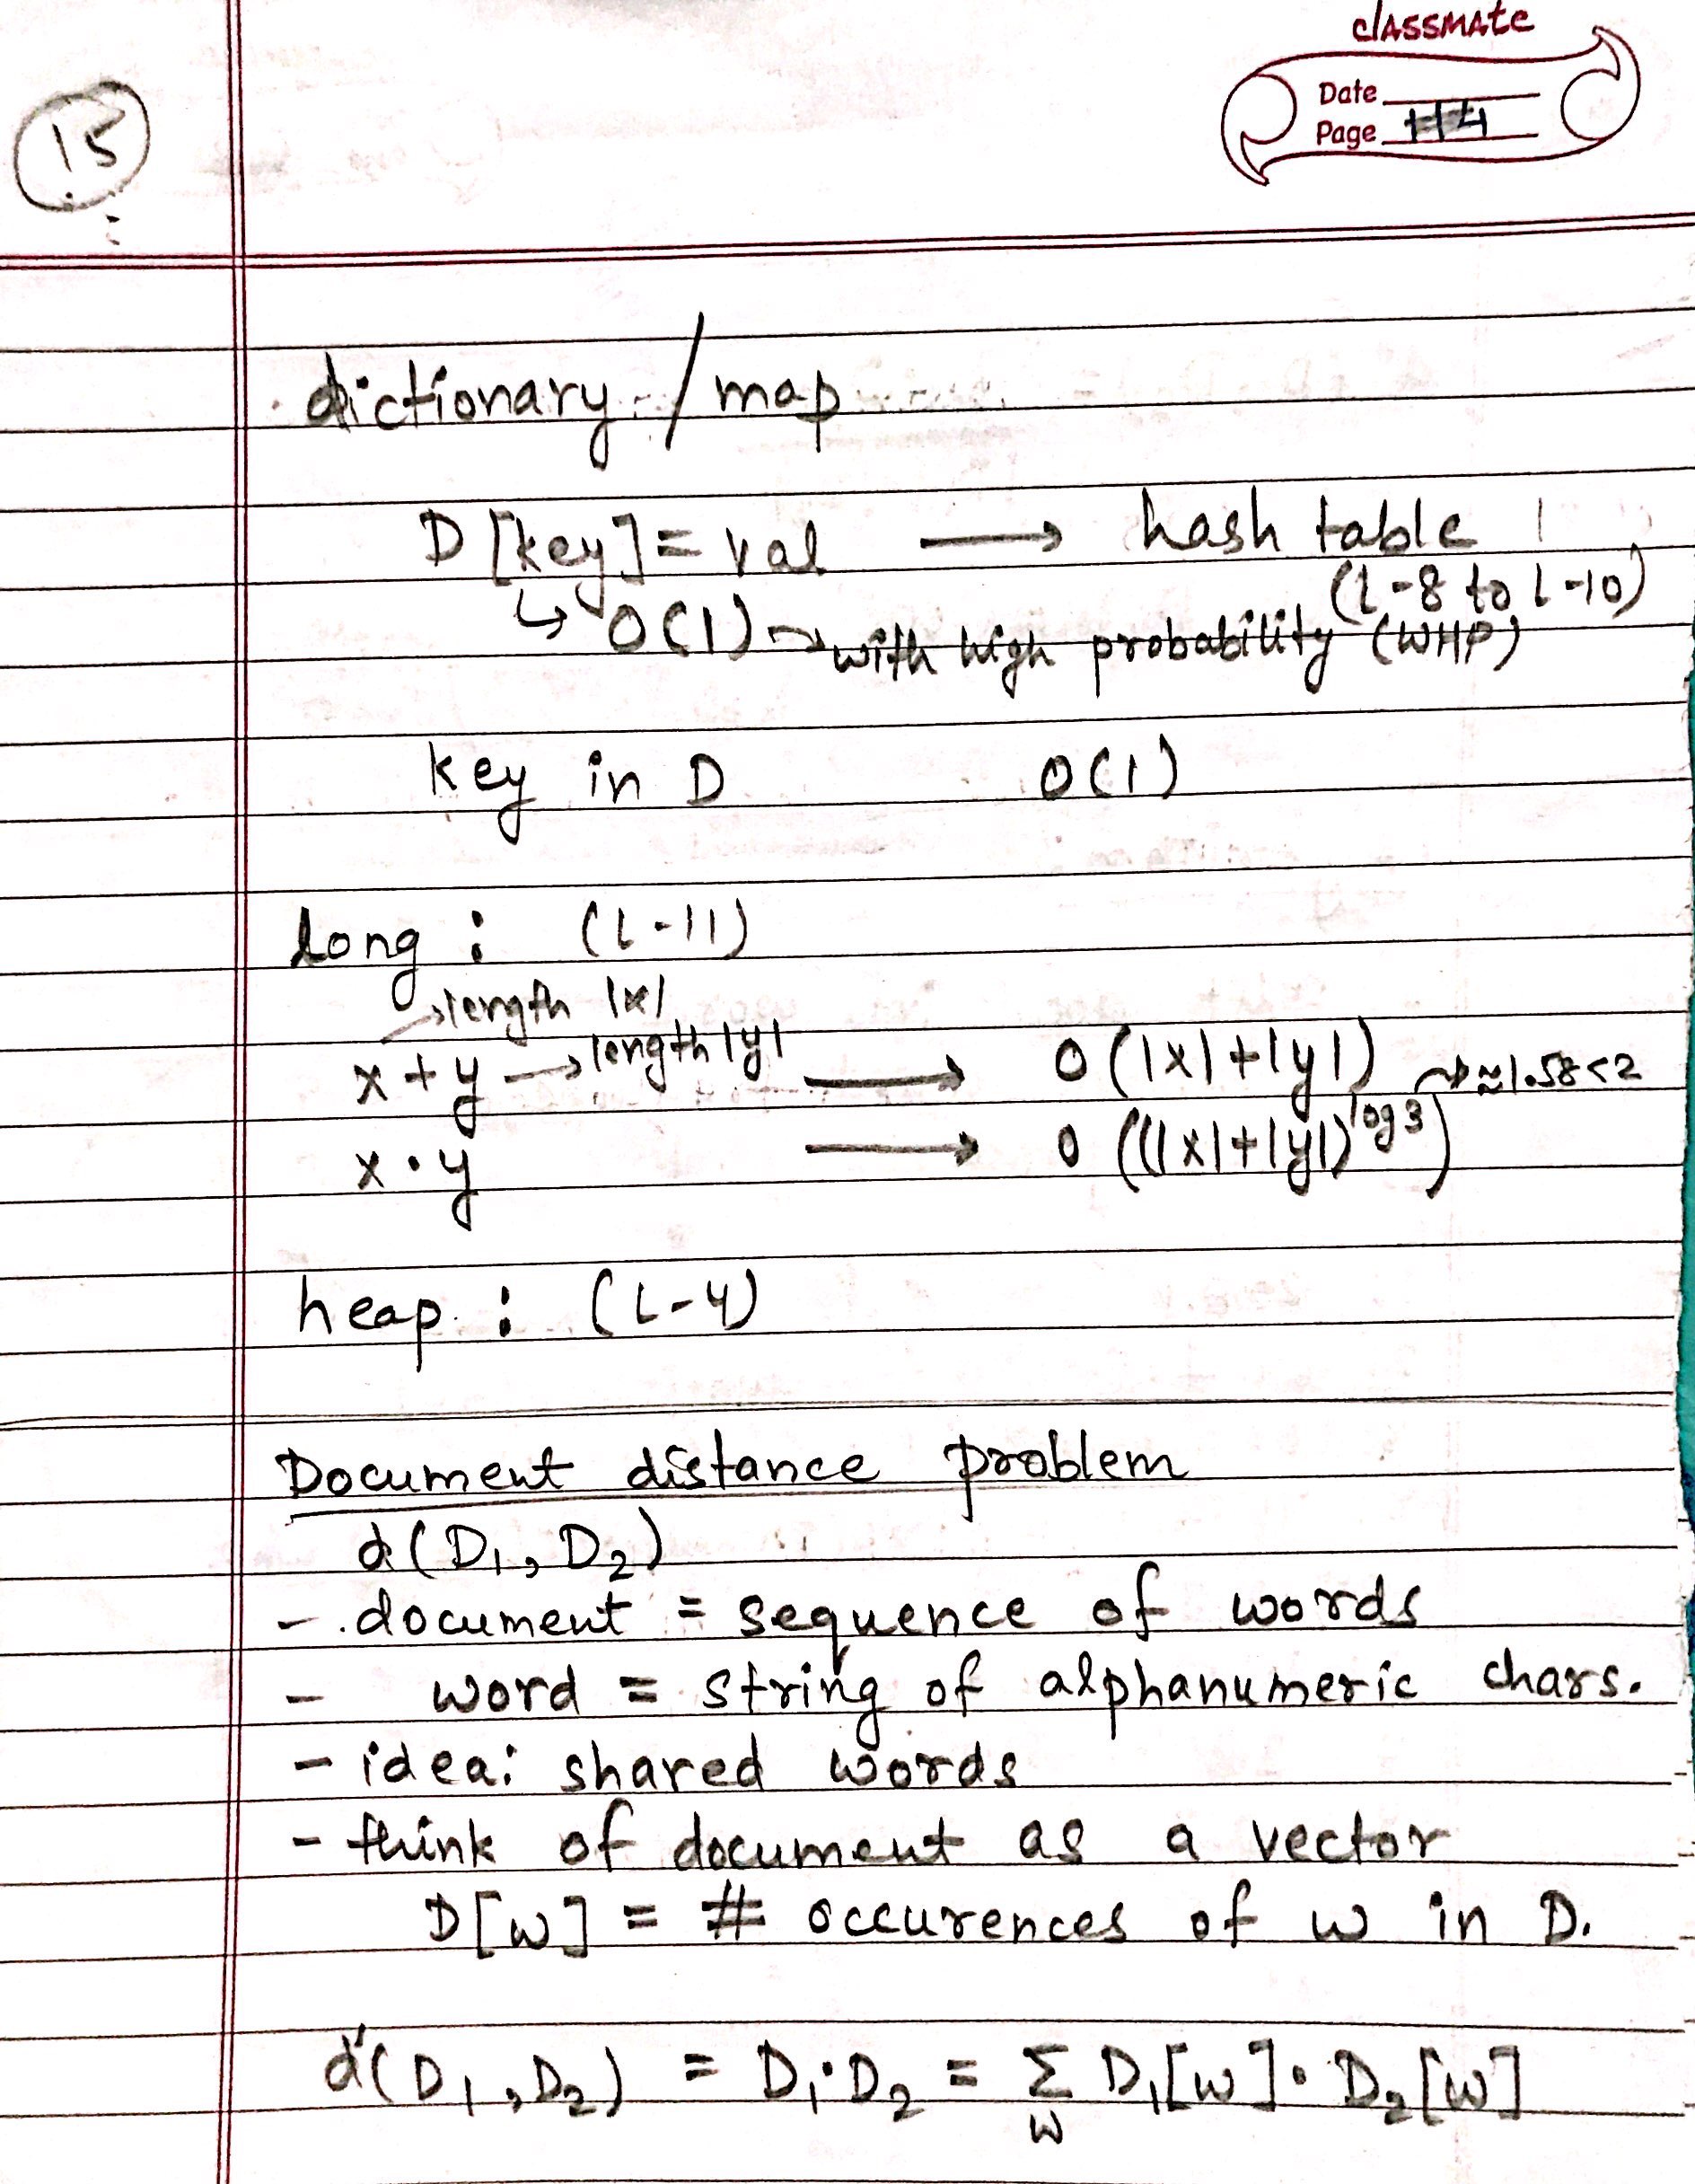 classmate
Date
Page 114
15
dictionary / map
D[key] = val → hash table
(L-8 to L-10)
↳ O(1) → with high probability (WHP)
key in D O(1)
long : (L-11)
→ length |x|
x + y → length |y| → O(|x|+|y|) → ≈1.58<2
x · y → O((|x|+|y|)^log 3)
heap : (L-4)
Document distance problem
d(D₁, D₂)
- document = sequence of words
- word = string of alphanumeric chars.
- idea: shared words
- think of document as a vector
D[w] = # occurences of w in D.
d'(D₁, D₂) = D₁·D₂ = Σ_w D₁[w]·D₂[w]